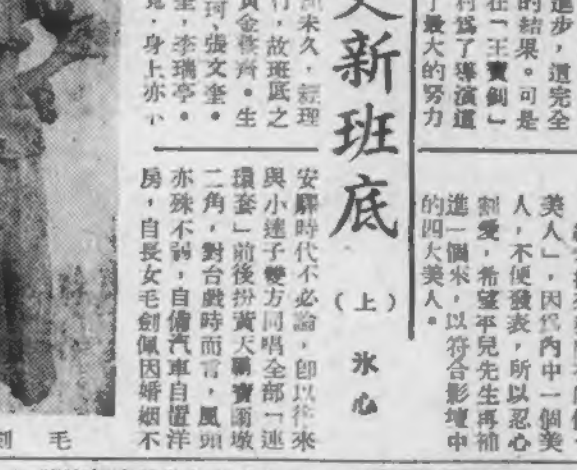 進步，這完全
的結果。可是
在「王寶釧」
利爲了導演這
了最大的努力
美人」，因爲內中一個美
人，不便發表，所以忍心
割愛，希望平兒先生再補
進一個來，以符合影壇中
的四大美人。
新班底
（上）
氷心
未久，經理
，故班底之
黃金發齊。生
珂，張文奎。
奎，李瑞亭。
，身上亦小
安驛時代不必論，卽以往來
與小達子雙方同唱全部「連
環套」前後扮黃天霸竇爾墩
二角，對台戲時而言，風頭
亦殊不弱，自備汽車自置洋
房，自長女毛劍佩因婚姻不
毛 劍